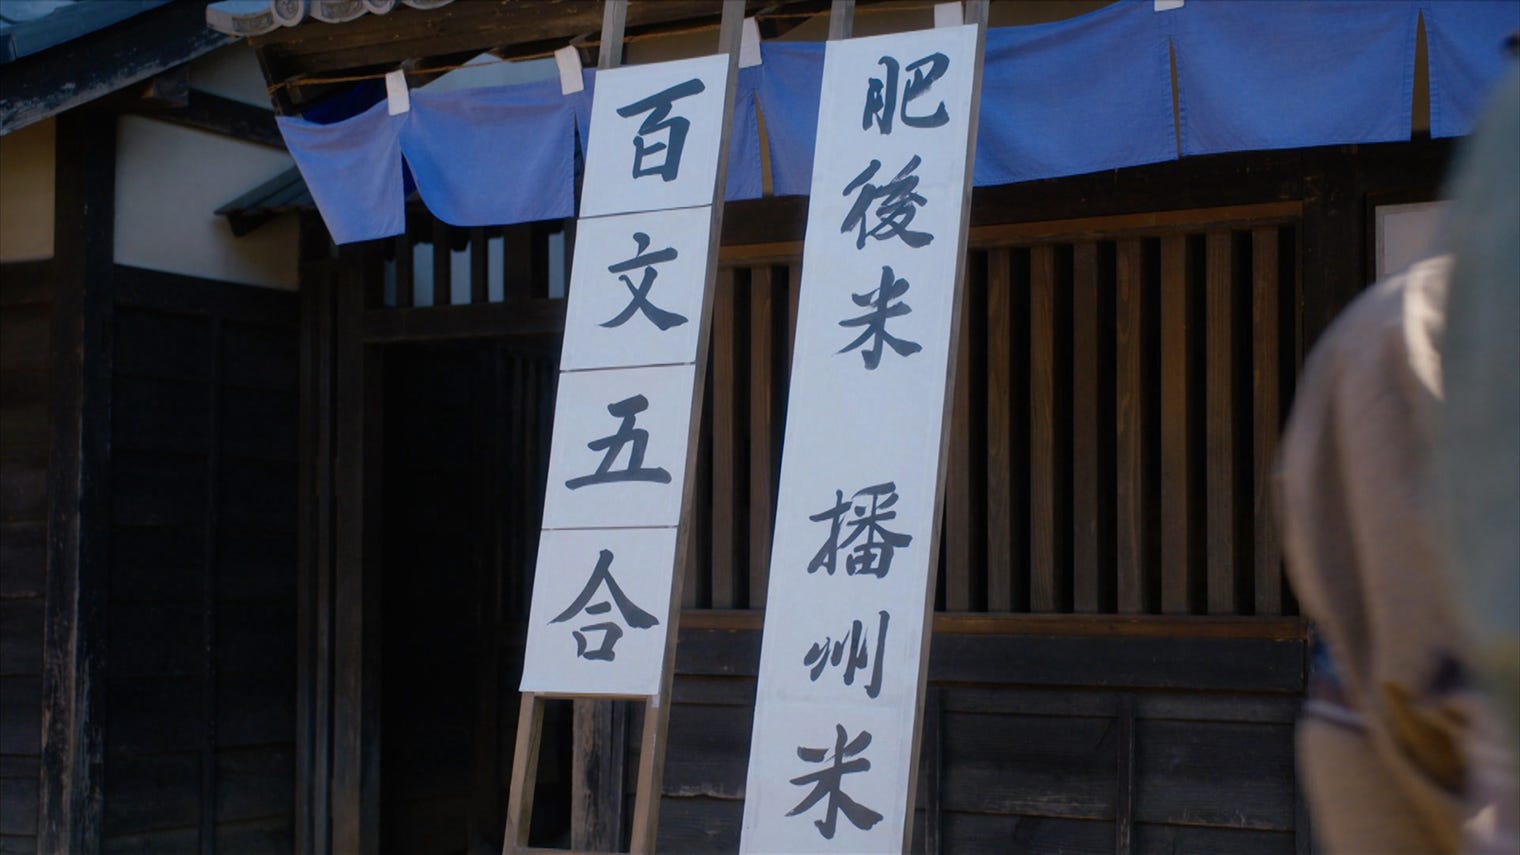 肥後米 播州米
百文五合